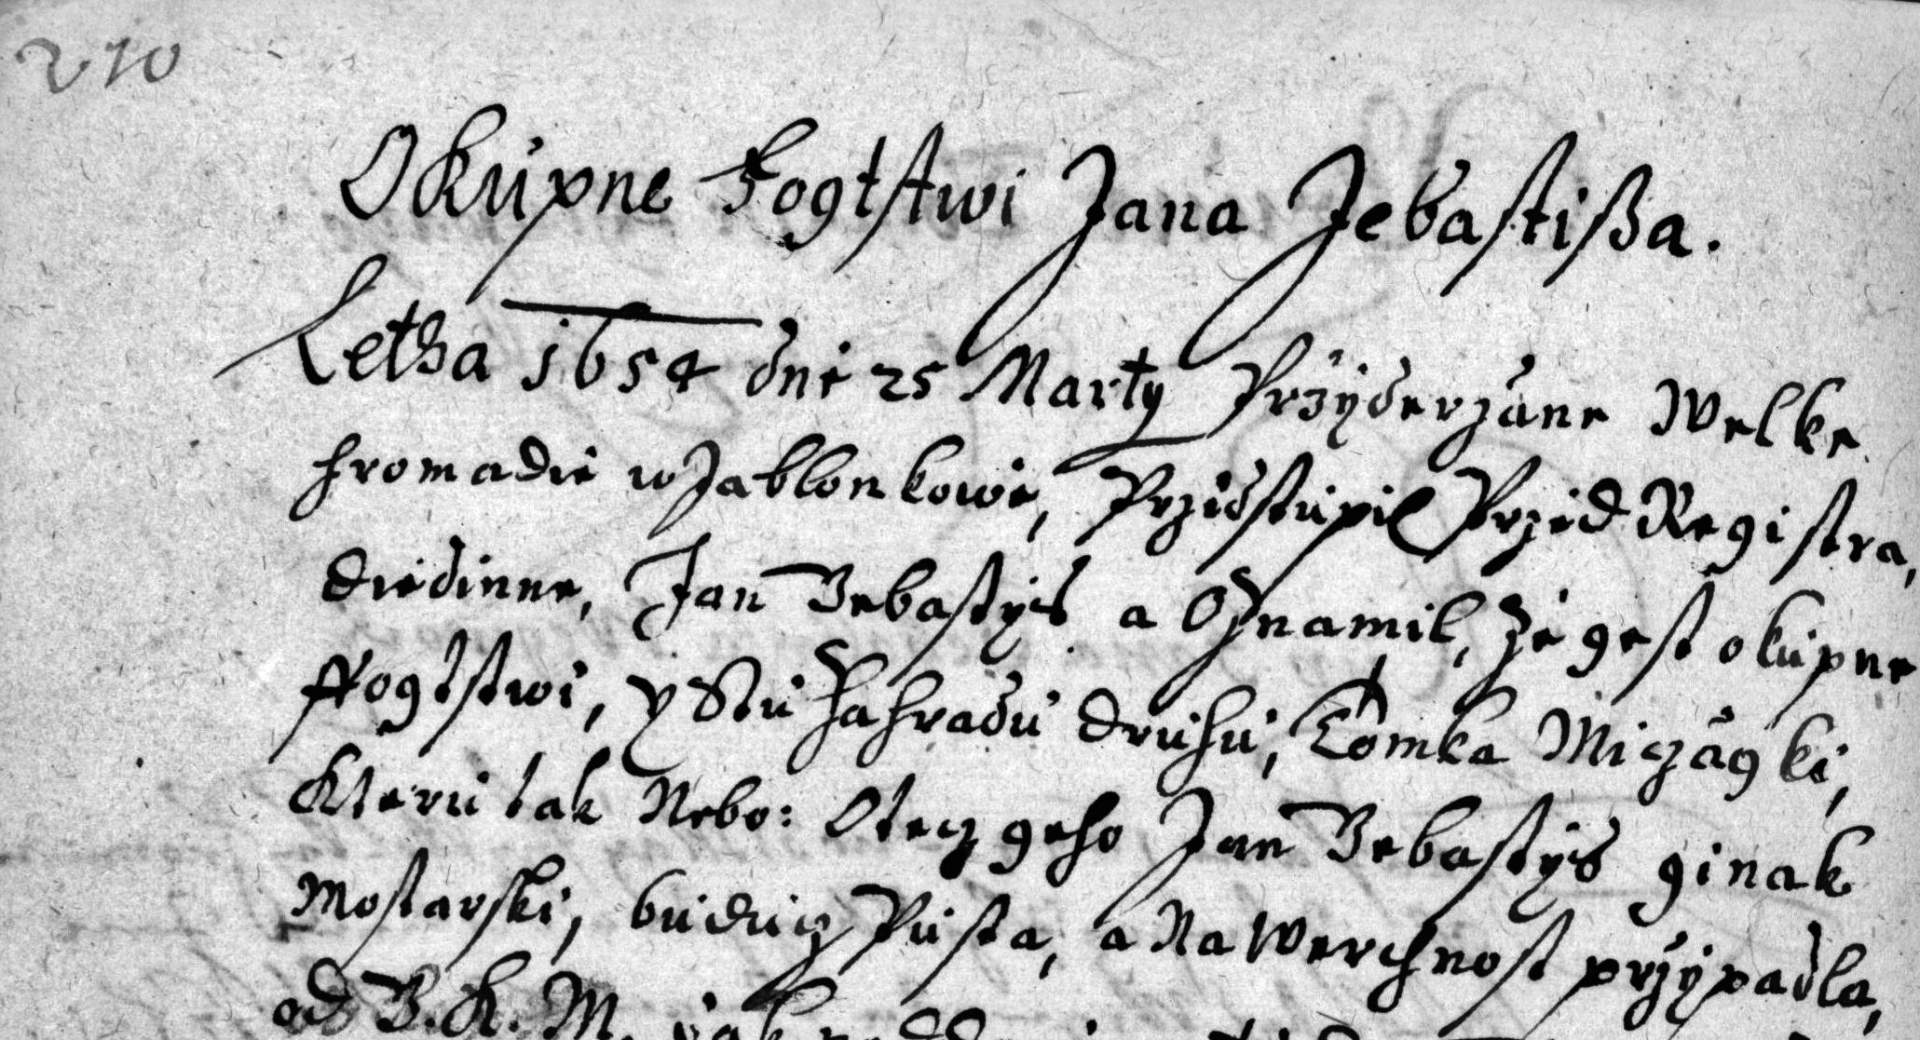 210
Okupne Fogtstwi Jana Sebastissa.
Letha 1654 dne 25 Marty Przyderzane Welke
hromadie w Jablonkowie, Przidstupil Przed Registra,
diedinne, Jan Sebastys a Oznamil, że gest okupne
ffogtstwi, y Stu Zahradu druhu, Tomka Miczagki,
kteru tak Nebo: Otecz geho Jan Sebastys ginak
Mostarski, buducz Pusta, a Na Werchnost przypadla,
od B. K. M.